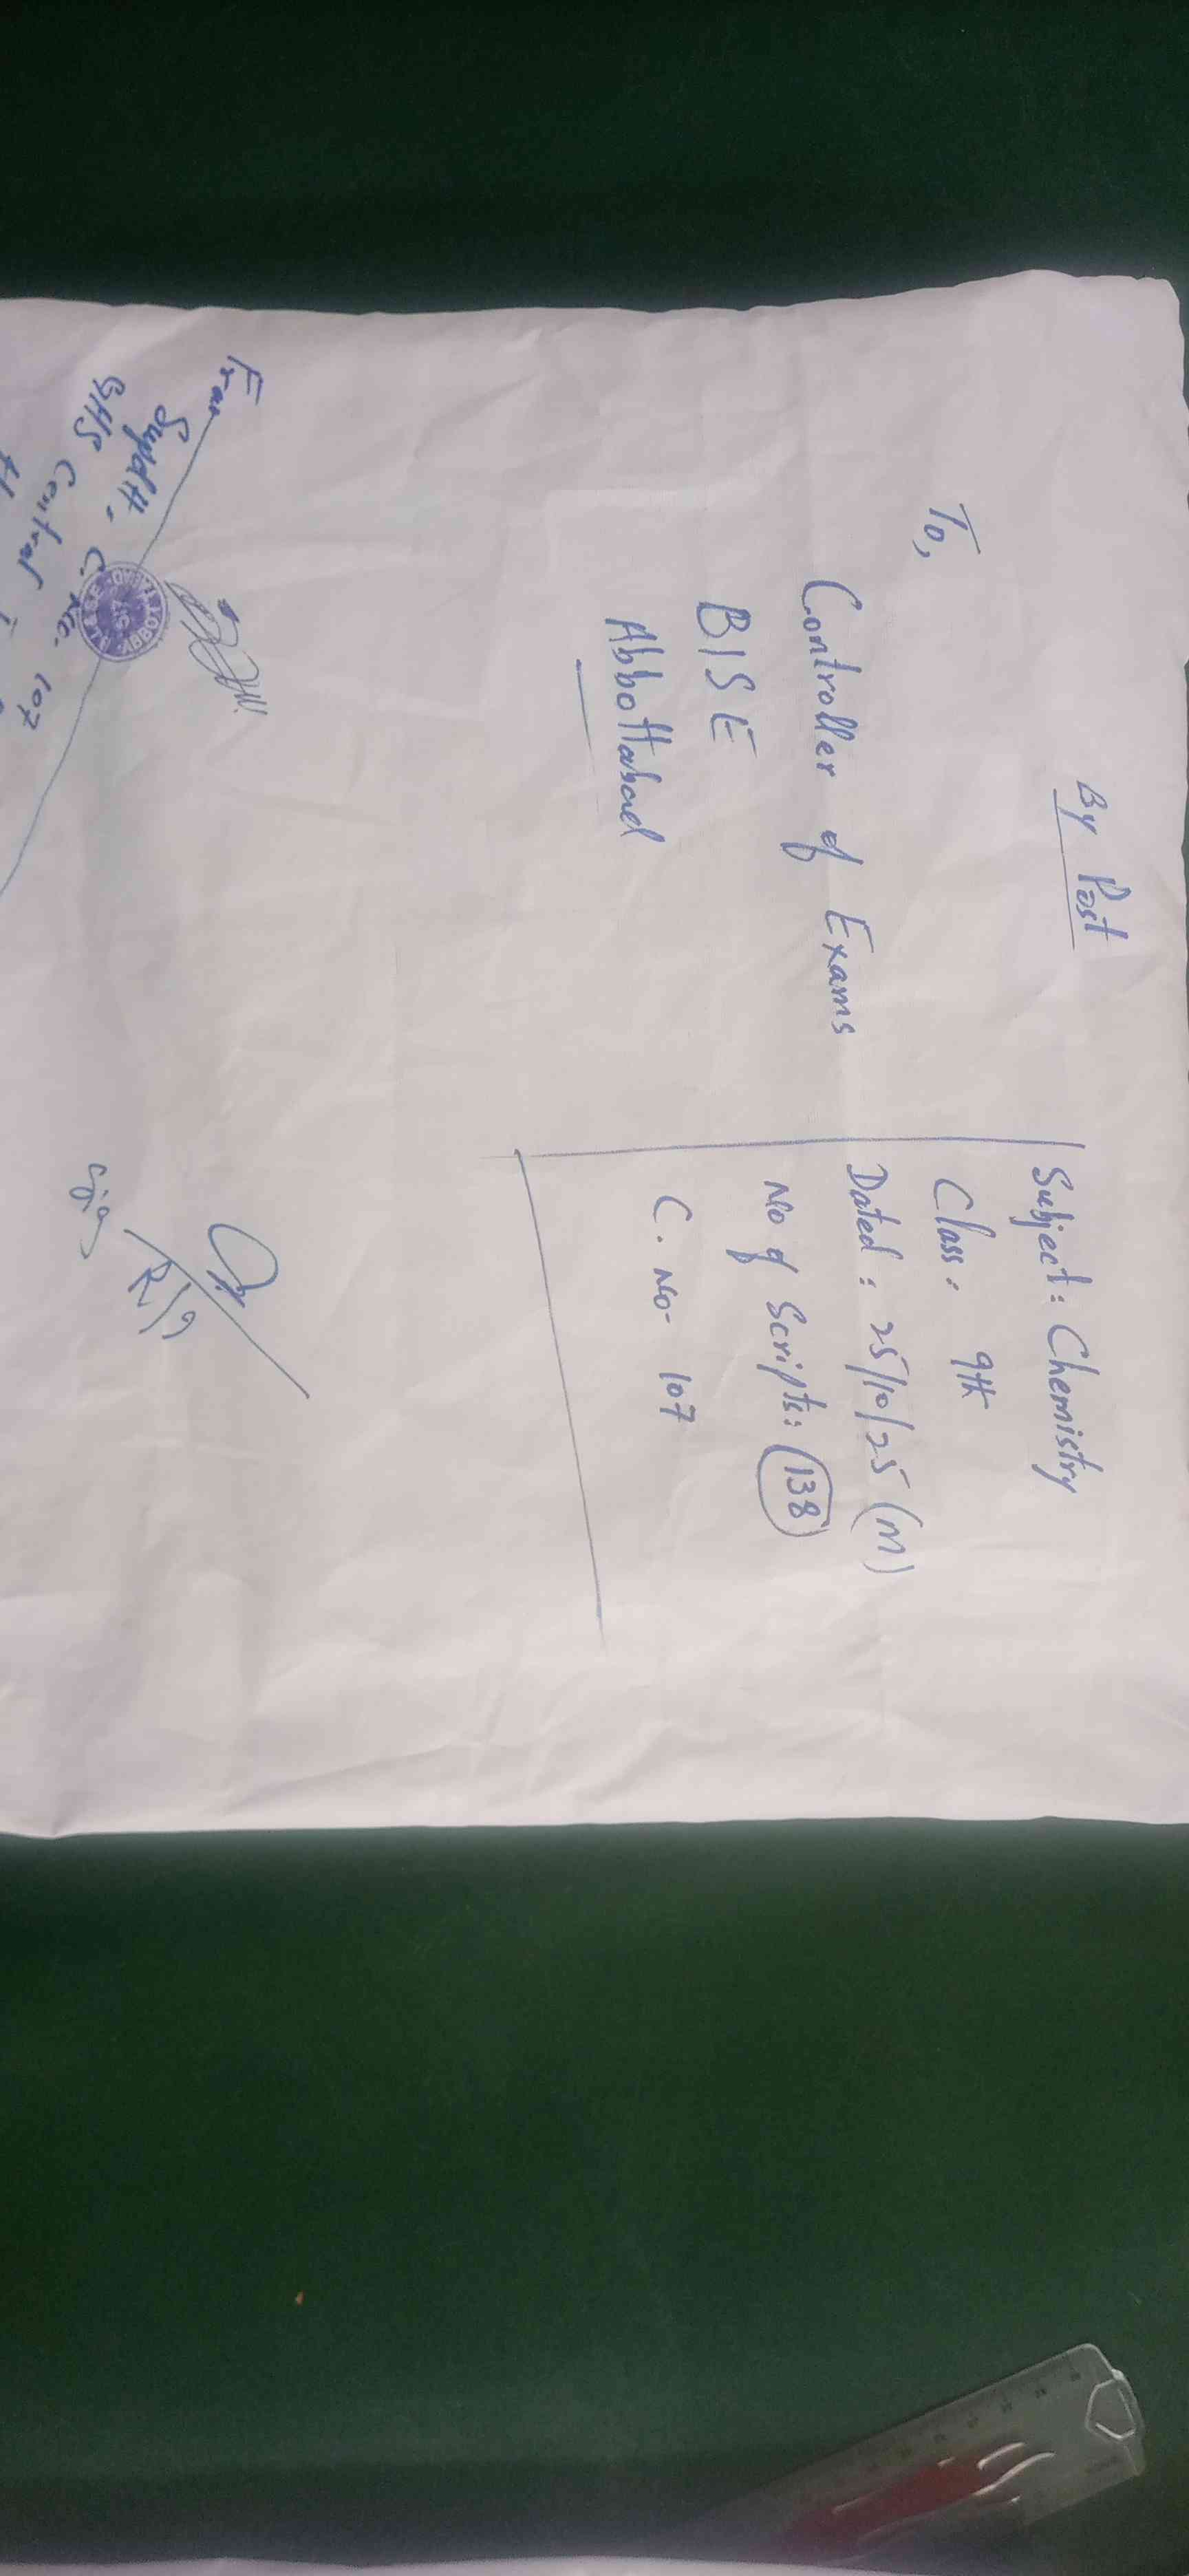 By Post
To,
Controller of Exams
BISE
Abbottabad
Subject: Chemistry
Class: 9th
Dated: 25/10/25 (M)
No of Scripts: 138
C. No- 107
From
Supdtt. C. No. 107
GHS Central
R/S